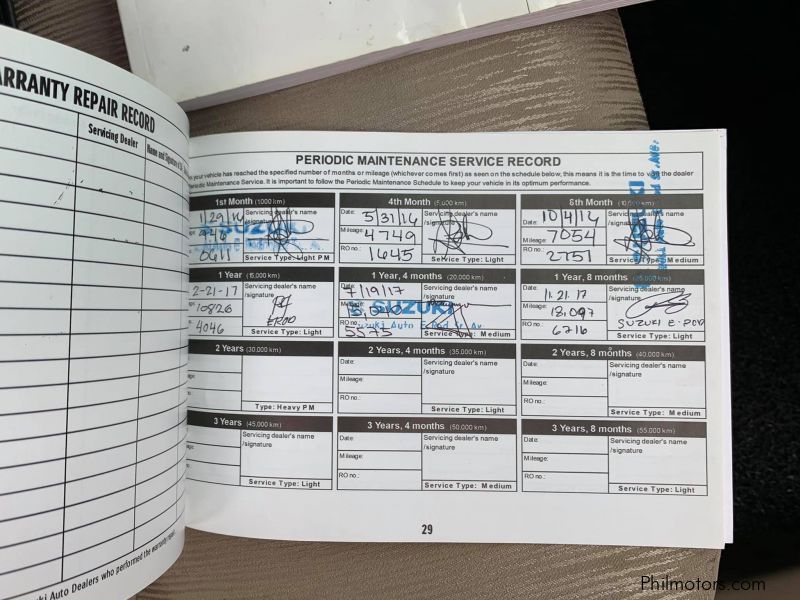 ARRANTY REPAIR RECORD
Servicing Dealer
Name and Signature of
uki Auto Dealers who performed the warranty repair.
PERIODIC MAINTENANCE SERVICE RECORD
your vehicle has reached the specified number of months or mileage (whichever comes first) as seen on the schedule below, this means it is the time to visit the dealer
Periodic Maintenance Service. It is important to follow the Periodic Maintenance Schedule to keep your vehicle in its optimum performance.
1st Month (1000 km)
1/29/16
Servicing dealer's name
/signature
SUZUKI
Service Type: Light PM
4th Month (5,000 km)
Date: 5/31/16
Mileage: 4749
RO no.: 1645
Servicing dealer's name
/signature
Service Type: Light
8th Month (10,000 km)
Date: 10/4/16
Mileage: 7054
RO no.: 2751
Servicing dealer's name
/signature
Service Type: Medium
1 Year (15,000 km)
2-21-17
10826
4046
Servicing dealer's name
/signature
Service Type: Light
1 Year, 4 months (20,000 km)
Date: 7/19/17
Mileage:
RO no.: 5575
Servicing dealer's name
/signature
SUZUKI
Suzuki Auto
Service Type: Medium
1 Year, 8 months (25,000 km)
Date: 11.21.17
Mileage: 18,097
RO no.: 6716
Servicing dealer's name
/signature
SUZUKI E-ROD
Service Type: Light
2 Years (30,000 km)
Servicing dealer's name
/signature
Type: Heavy PM
2 Years, 4 months (35,000 km)
Date:
Mileage:
RO no.:
Servicing dealer's name
/signature
Service Type: Light
2 Years, 8 months (40,000 km)
Date:
Mileage:
RO no.:
Servicing dealer's name
/signature
Service Type: Medium
3 Years (45,000 km)
Servicing dealer's name
/signature
Service Type: Light
3 Years, 4 months (50,000 km)
Date:
Mileage:
RO no.:
Servicing dealer's name
/signature
Service Type: Medium
3 Years, 8 months (55,000 km)
Date:
Mileage:
RO no.:
Servicing dealer's name
/signature
Service Type: Light
29
Philmotors.com